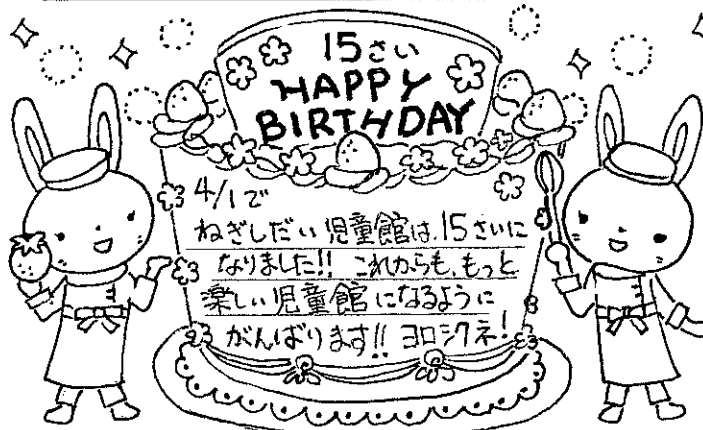 15さい
HAPPY
BIRTHDAY
4/1で
ねぎしだい児童館は、15さいに
なりました!! これからも、もっと
楽しい児童館になるように
がんばります!! ヨロシクネ!